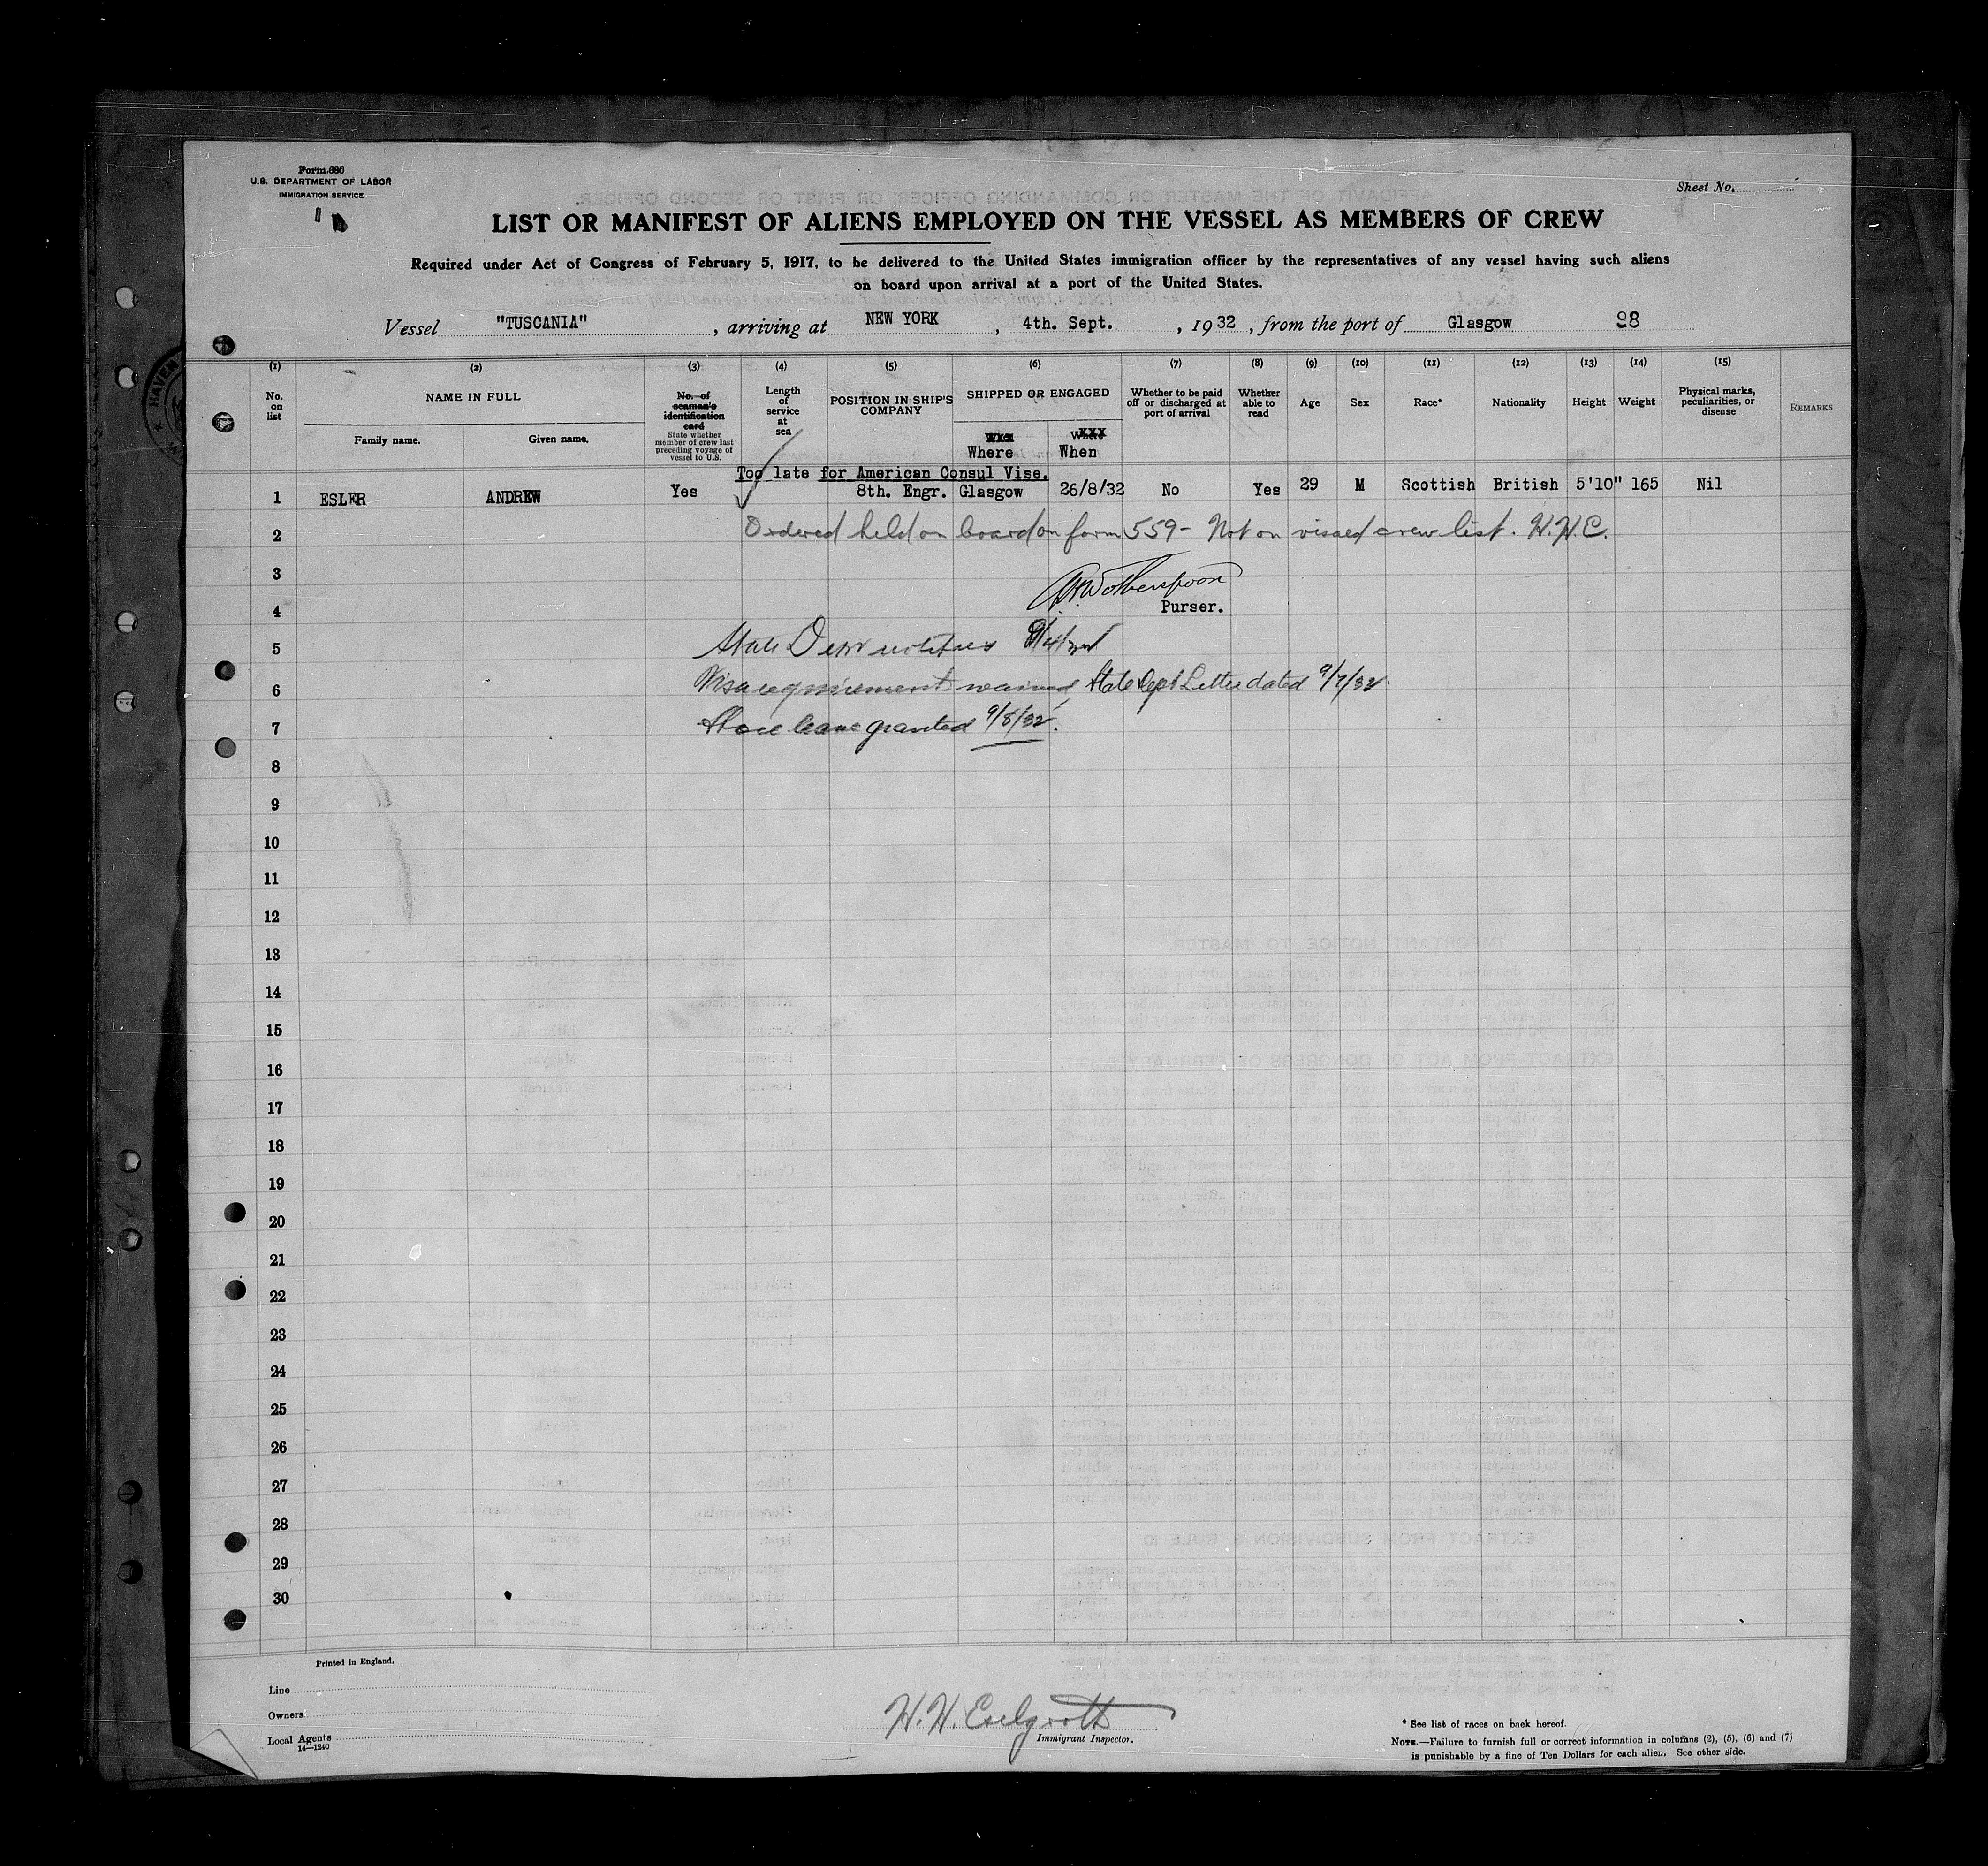 Form 680
U.S. DEPARTMENT OF LABOR
IMMIGRATION SERVICE
Sheet No.
LIST OR MANIFEST OF ALIENS EMPLOYED ON THE VESSEL AS MEMBERS OF CREW
Required under Act of Congress of February 5, 1917, to be delivered to the United States immigration officer by the representatives of any vessel having such aliens
on board upon arrival at a port of the United States.
Vessel "TUSCANIA", arriving at NEW YORK, 4th. Sept., 1932, from the port of Glasgow 98
(1) (2) (3) (4) (5) (6) (7) (8) (9) (10) (11) (12) (13) (14) (15)
No. on list
NAME IN FULL
Family name. Given name.
No. of seaman's identification card
State whether member of crew last preceding voyage of vessel to U.S.
Length of service at sea
POSITION IN SHIP'S COMPANY
SHIPPED OR ENGAGED
Where When
Whether to be paid off or discharged at port of arrival
Whether able to read
Age
Sex
Race*
Nationality
Height
Weight
Physical marks, peculiarities, or disease
REMARKS
Too late for American Consul Vise.
1 ESLER ANDREW Yes 8th. Engr. Glasgow 26/8/32 No Yes 29 M Scottish British 5'10" 165 Nil
2 Ordered held on board on form 559- Not on visaed crew list. H.H.E.
3
4 Purser.
5 State
6 Visa requirement waived, State Dept Letter dated 9/7/32.
7 Shore leave granted 9/8/32.
8
9
10
11
12
13
14
15
16
17
18
19
20
21
22
23
24
25
26
27
28
29
30
Printed in England.
Line
Owners
Local Agents
14—1240
H.H.
Immigrant Inspector.
* See list of races on back hereof.
NOTE.—Failure to furnish full or correct information in columns (2), (5), (6) and (7)
is punishable by a fine of Ten Dollars for each alien. See other side.